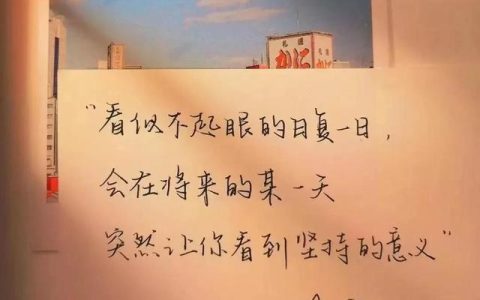 札幌
かに
“看似不起眼的日复一日，
会在将来的某一天
突然让你看到坚持的意义”